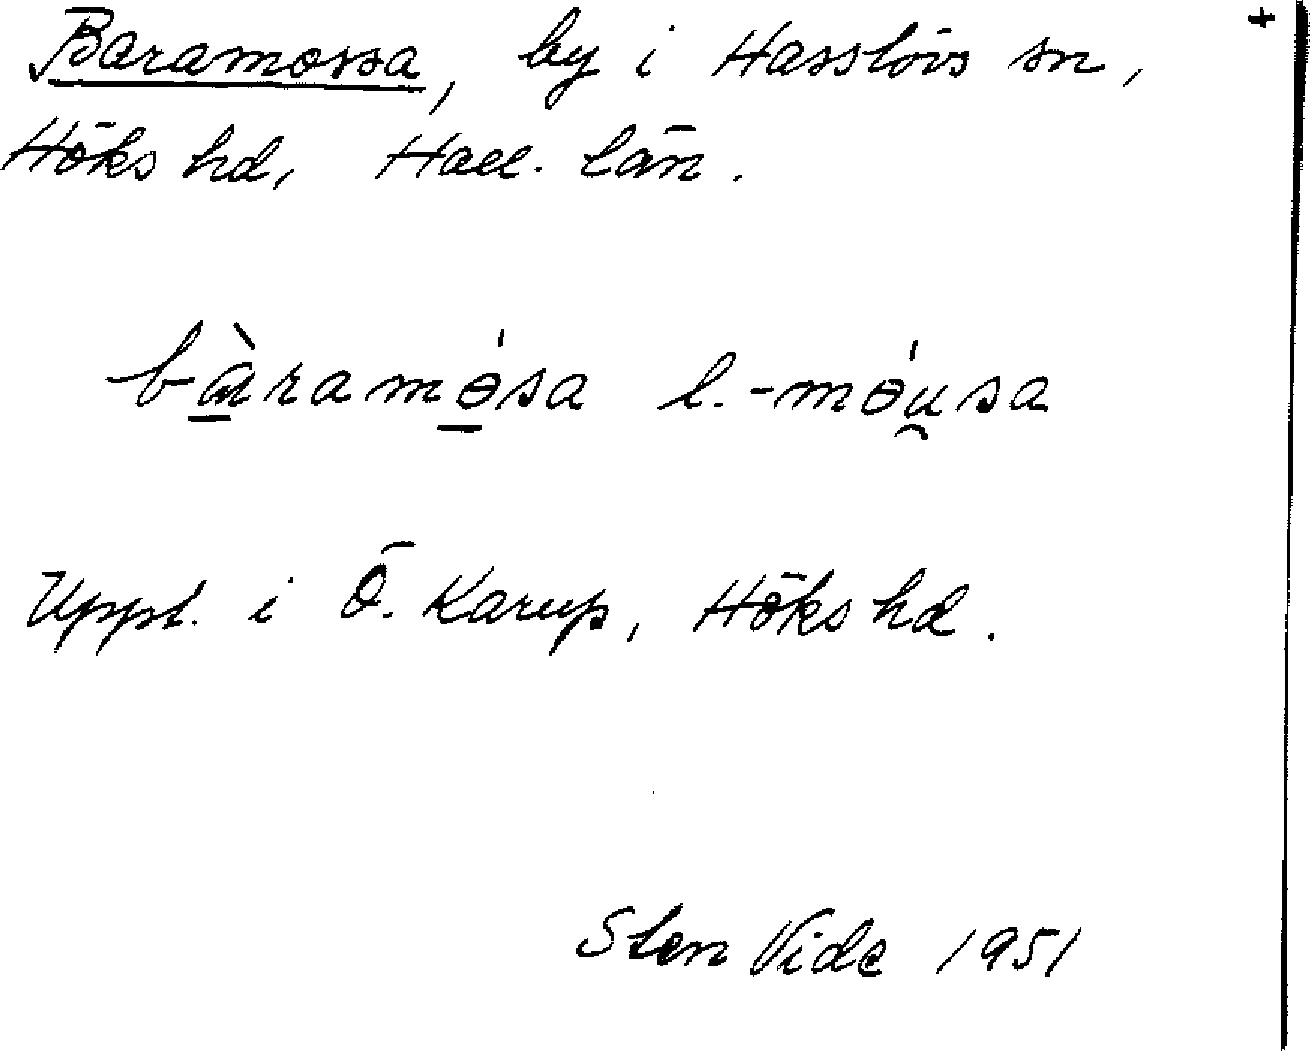 Baramossa, by i Hasslövs sn, +
Höks hd, Hall. län.
bàramɵ́sa l. -mɵ́u̯sa
Uppt. i Ö. Karup, Höks hd.
Sten Vide 1951